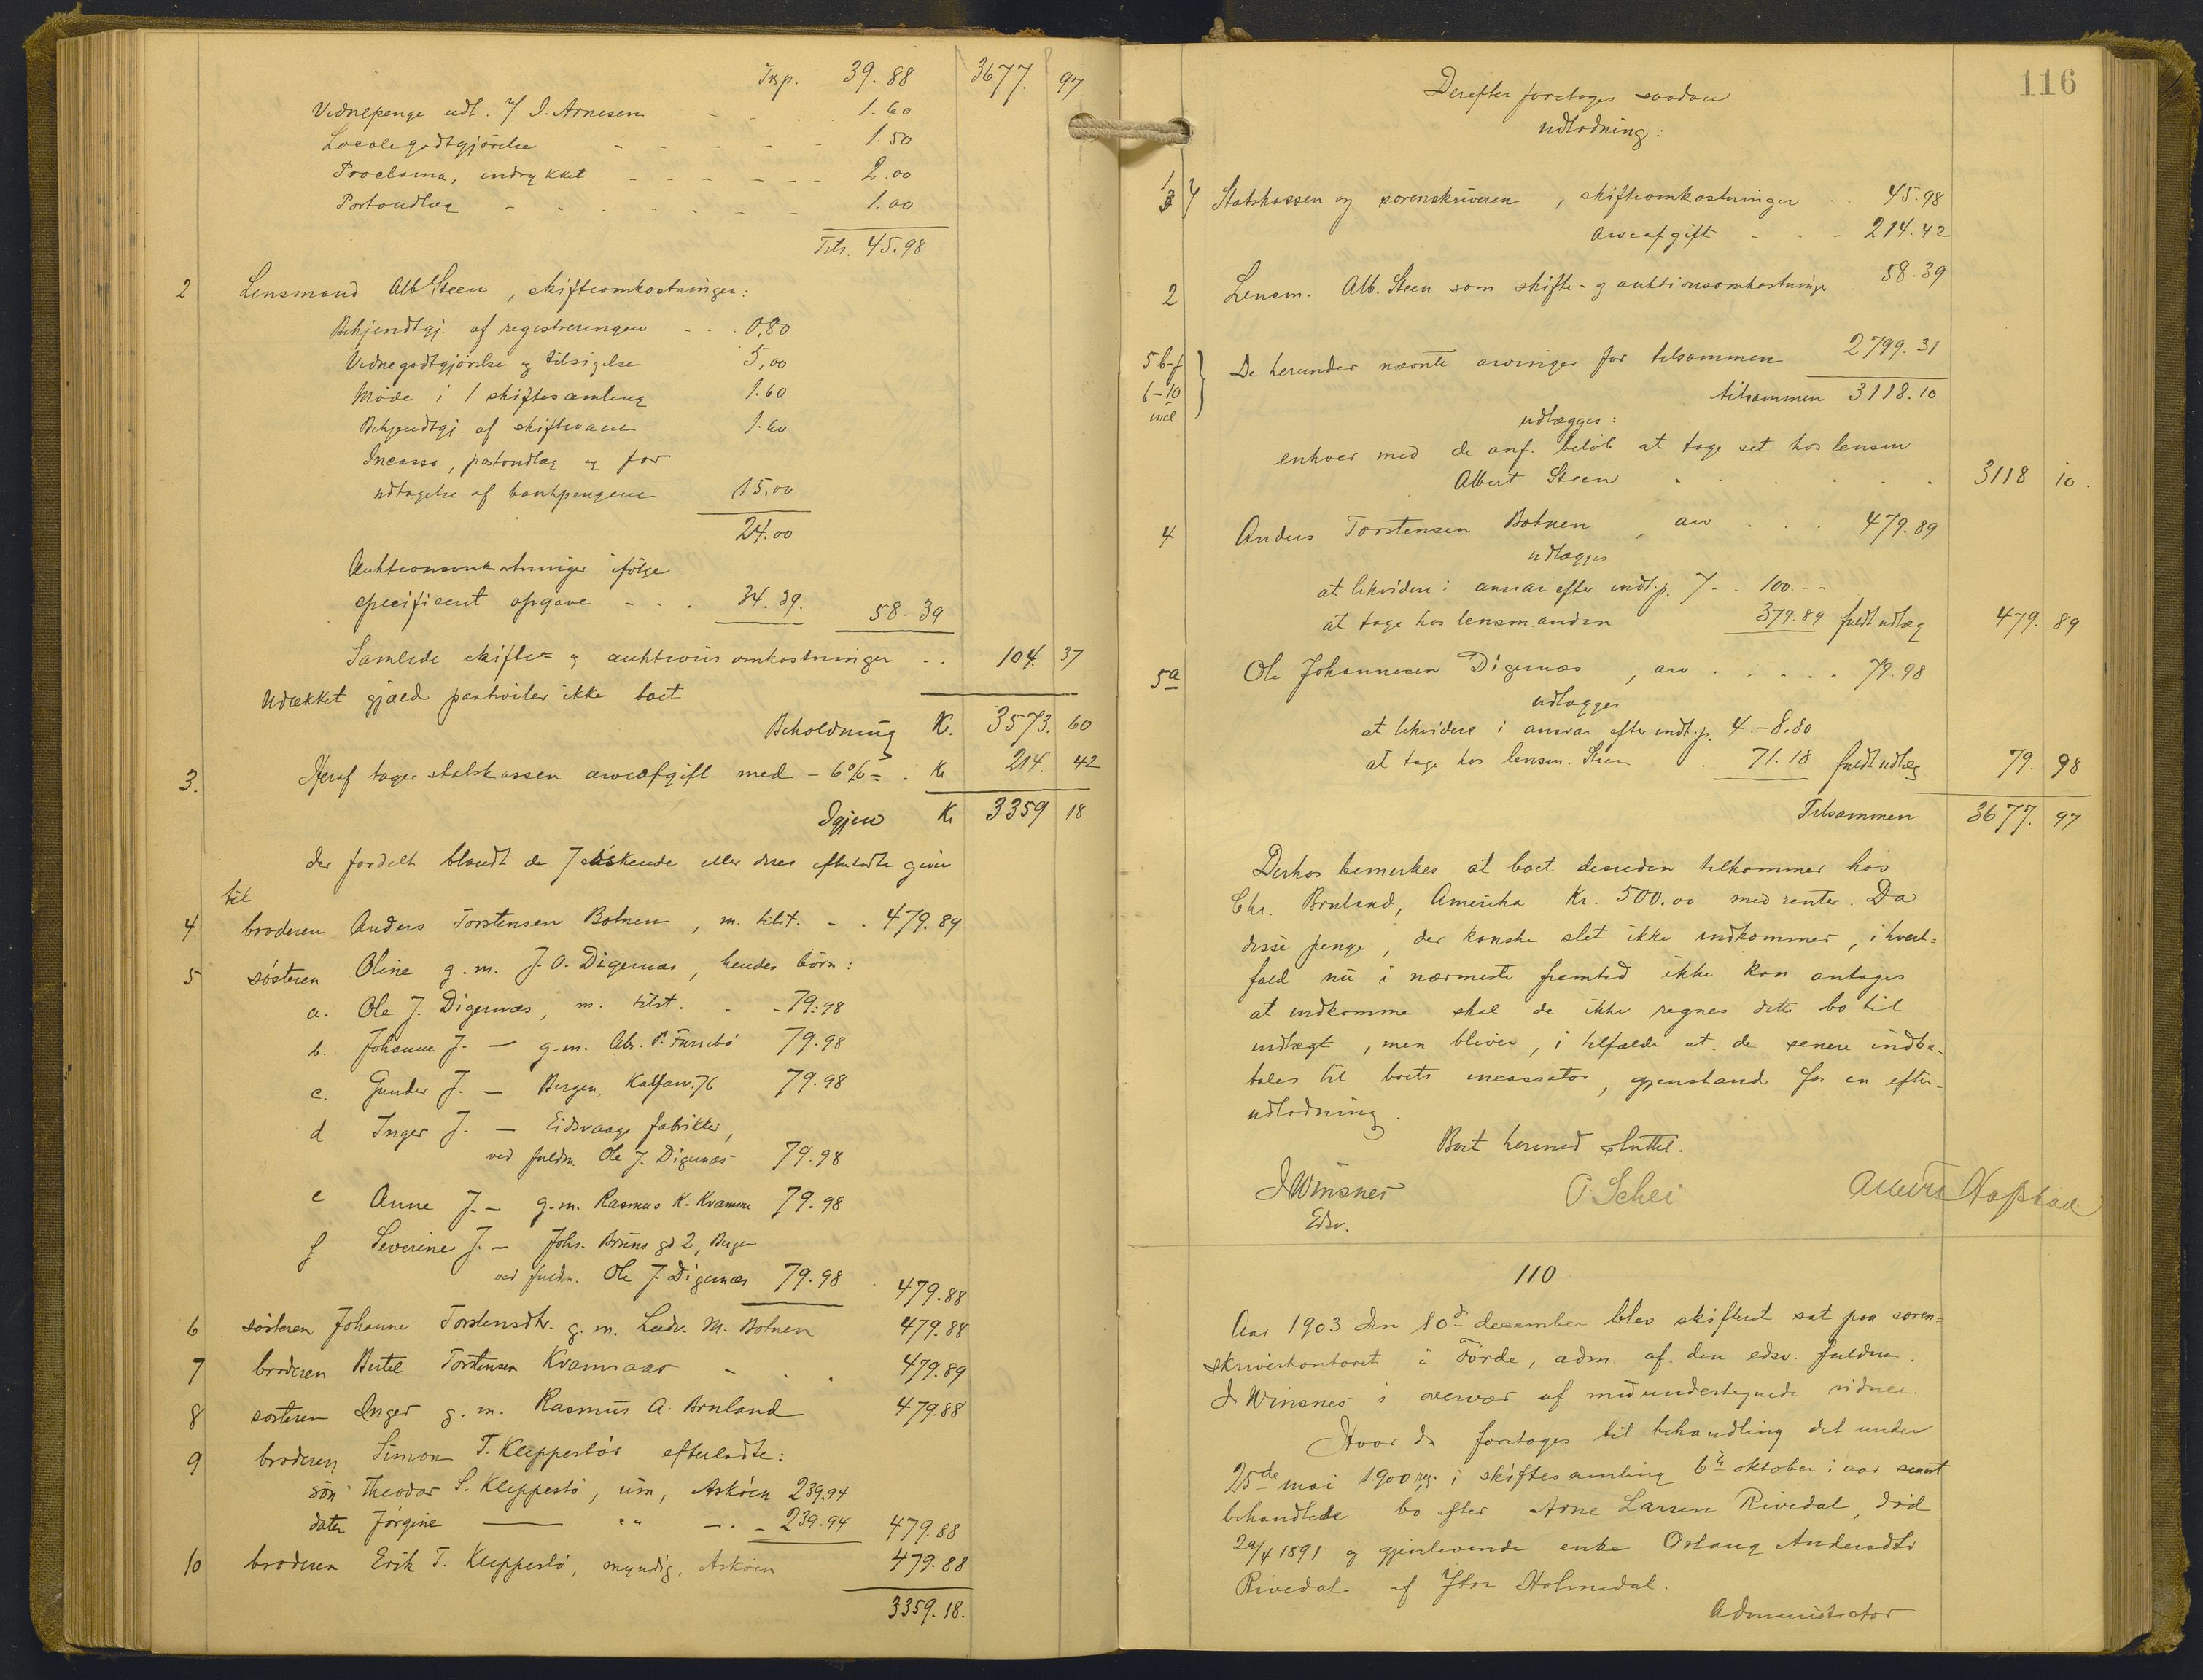 Trsp. 39.88 3677. 97
Vidnepenge udl. af I. Arnesen - - - 1.60
Localegodtgjörelse - - - - - 1.50
Proclama, indrykket - - - - - - 2.00
Portoudlæg - - - - - - - 1.00
Tils. 45.98
2 Lensmand Alb. Steen, skifteomkostninger:
Bekjendtgj. af registreringen - - . 0,80
Vidnegodtgjörelse og tilsigelse 5,00
Möde i 1 skiftesamling 1.60
Bekjendtgj. af skiftevæsen 1.60
Incasso, portoudlæg og for
udtagelse af bankpengene 15,00
24.00
Auktionsomkostninger ifölge
specificeret opgave - - . 34.39. 58.39
Samlede skifte- og auktionsomkostninger .. 104. 37
Udækket gjæld paahviler ikke boet
Beholdning K. 3573. 60
3. Heraf tager statskassen arveafgift med - 6% = . Kr 214. 42
Igjen Kr 3359 18
der fordelt blandt de 7 söskende eller deres efterladte giver
til
4. broderen Anders Torstensen Botnen, m. tilst. - . 479.89
5 søsteren Oline g. m. J. O. Digernæs, hendes börn:
a. Ole J. Digernæs, m. tilst. . - 79.98
b. Johanne J. — g.m. Abr. P. Furebö 79.98
c. Gunder J. — Bergen, Kalfarv. 76 79.98
d Inger J. — Eidsvaags fabrikker,
ved fuldm. Ole J. Digernæs 79.98
e Anne J. — g.m. Rasmus K. Kvamme 79.98
f Severine J. — Johs. Bruns gd 2, Bergen
ved fuldm. Ole J. Digernæs 79.98 . 479.88
6 søsteren Johanne Torstensdtr. g. m. Ludv. M. Botnen 479.88
7 broderen Bertel Torstensen Kvamsaas - . . 479.89
8 søsteren Inger g. m. Rasmus A. Bruland 479.88
9 broderen Simon T. Kleppestös efterladte:
sön Theodor S. Kleppestö, um, Asköen 239.94
datter Jörgine — " — . - 239.94 479.88
10 broderen Erik T. Kleppestö, myndig, Asköen 479.88
3359.18.
116
Derefter foretages saadan
udlodning:
1/3 Statskassen og sorenskriveren, skifteomkostninger . . 45.98
Arveafgift - - - 214.42
2 Lensm. Alb. Steen som skifte- og auktionsomkostninger . 58.39
5 b-f
6-10
incl
De herunder nævnte arvinger for tilsammen 2799.31
tilsammen 3118.10
udlægges:
enhver med de anf. belöb at tage set hos lensm
Albert Steen . . . . . . 3118 10.
4 Anders Torstensen Botnen, arv . . . 479.89
udlægges
at likvidere i ansvar efter indt.p. 7 - . 100. - -
at tage hos lensmanden 379.89 fuldt udlæg 479. 89
5a Ole Johannesen Digernæs, arv . . . . . 79.98
udlægges
at likvidere i ansvar efter indt.p. 4. - 8.80
at tage hos lensm. Steen . 71.18 fuldt udlæg 79. 98
Tilsammen 3677. 97
Derhos bemerkes at boet desuden tilkommer hos
Chr. Bruland, Amerika Kr. 500.00 med renter. Da
disse penge, der kanske slet ikke indkommer, i hvert=
fald nu i nærmeste fremtid ikke kan antages
at indkomme skal de ikke regnes dette bo til
indtægt, men bliver, i tilfælde at de senere indbe-
tales til boets incassator, gjenstand for en efter-
udlodning.
Boet hermed sluttet.
J Winsnes P. Schei Hafstad
Edsv.
110
Aar 1903 den 10de december blev skifteret sat paa soren=
skriverkontoret i Förde, adm. af den edsv. fuldm.
J. Winsnes i overvær af medundertegnede vidner.
Hvor da foretages til behandling det under
25de mai 1900 reg. i skiftesamling 6te oktober i aar senest
behandlede bo efter Arne Larsen Rivedal, död
29/4 1891 og gjenlevende enke Oslaug Andersdtr
Rivedal af Ytre Holmedal.
Administrator